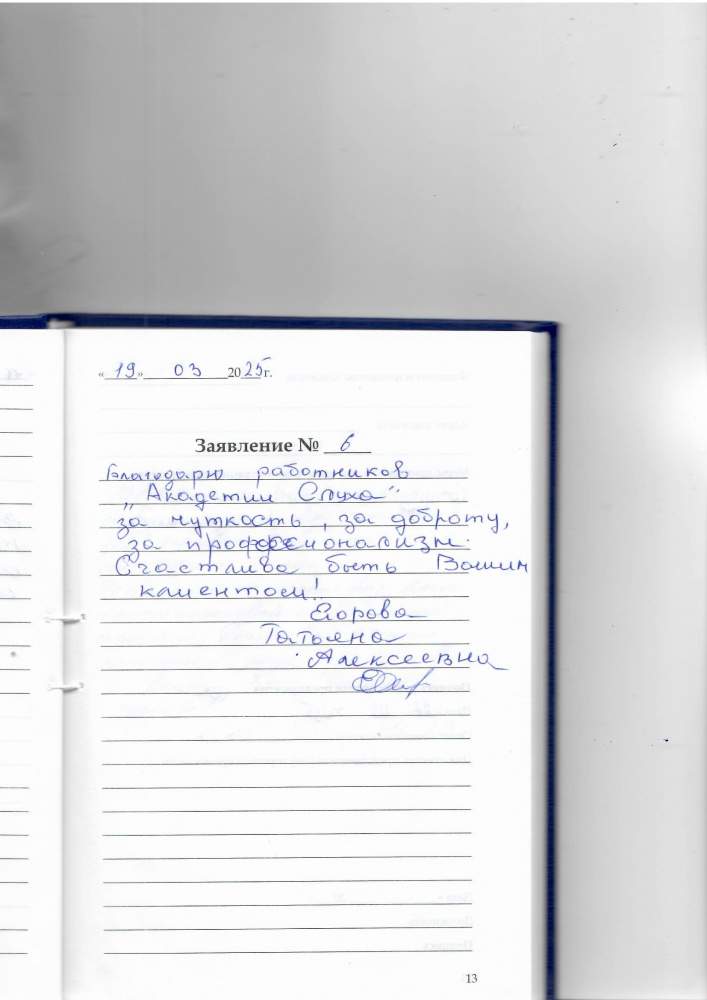 «19» 03 2025г.
Заявление № 6
Благодарю работников
„Академии Слуха“
за чуткость, за доброту,
за профессионализм.
Счастлива быть Вашим
клиентом!
Егорова
Татьяна
Алексеевна
13